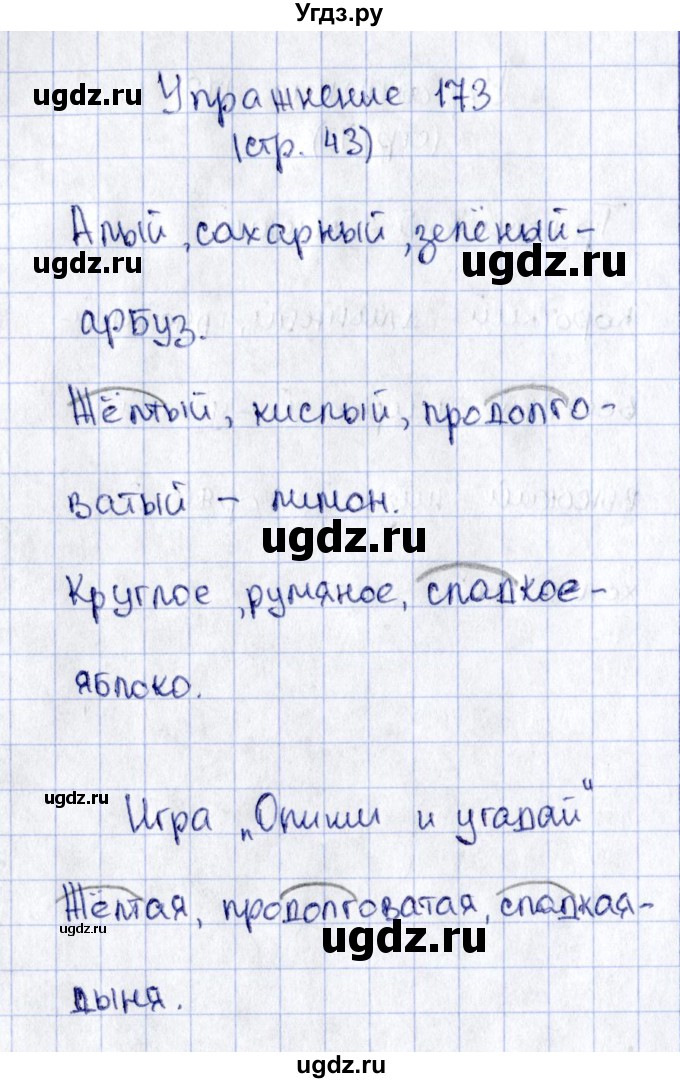 Угдз.ру
ugdz.ru Упражнение 173
(стр. (43)
Алый, сахарный, зелёный -
ugdz.ru ugdz.ru
арбуз.
Жёлтый, кислый, продолго-
ватый - лимон.
ugdz.ru
Круглое, румяное, сладкое -
яблоко.
ugdz.ru
Игра „Опиши и угадай“
Жёлтая, продолговатая, сладкая -
ugdz.ru ugdz.ru
дыня.
ugdz.ru